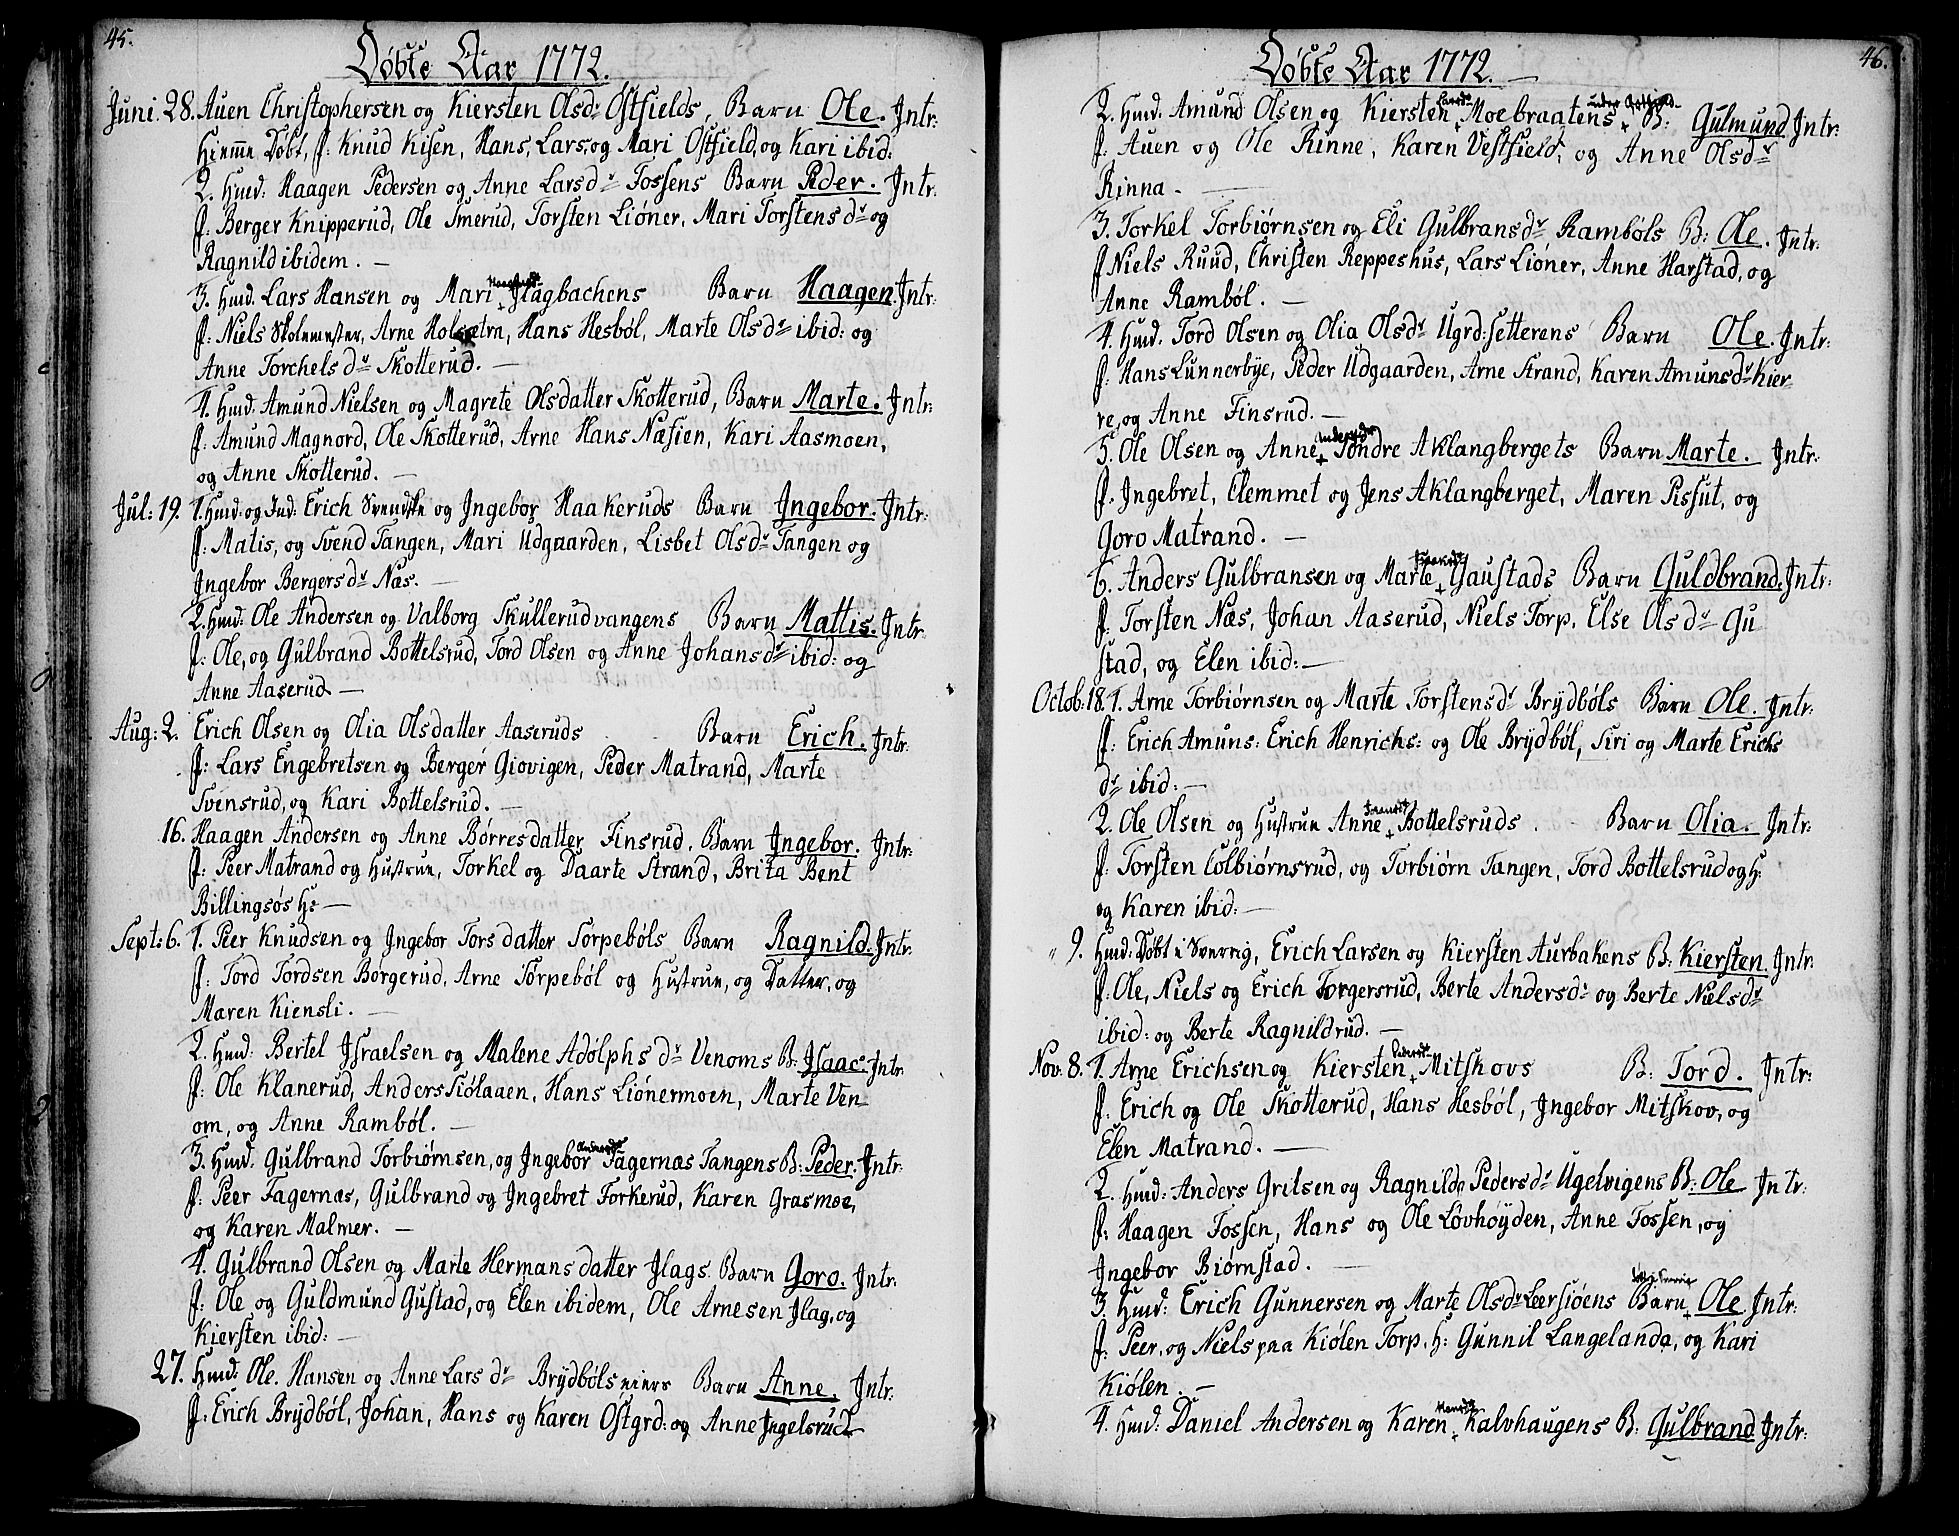 45.
Døbte Aar 1772.
Juni. 28. Auen Christophersen og Kiersten Olsdr Østfields, Barn Ole. Intr:
Hiemme Døbt, f: Knud Kisen, Hans, Lars, og Mari Østfield, og Kari ibid:
2. Hmd: Haagen Pedersen og Anne Larsdr Fossens Barn Peder. Intr.
f: Berger Knipperud, Ole Smerud, Torsten Liøner, Mari Torstensdr og
Ragnild ibidem. —
3. Hmd. Lars Hansen og Mari + Jlagbachens Barn Haagen. Intr:
f: Niels Skolemester, Arne Holsætra, Hans Hesbøl, Marte Olsdr ibid: og
Anne Torchelsdr Skotterud. —
4. Hmd. Amund Nielsen og Magrete Olsdatter Skotterud, Barn Marte. Intr:
f: Amund Magnord, Ole Skotterud, Arne Hans Næsien, Kari Aasmoen,
og Anne Skotterud. —
Jul: 19. 1. Hmd: og Ind: Erich Svendske og Ingebor Haakeruds Barn Ingebor. Intr:
f: Matis, og Svend Tangen, Mari Udgaarden, Lisbet Olsdr Tangen og
Ingebor Bergersdr Næs. —
2. Hmd: Ole Andersen og Valborg Skullerudvangens Barn Mattis. Intr:
f: Ole, og Gulbrand Bottelsrud, Tord Olsen og Anne Johansdr ibid: og
Anne Aaserud —
Aug: 2. Erich Olsen og Olia Olsdatter Aaseruds Barn Erich. Intr:
f: Lars Engebretsen og Berger Giovigen, Peder Matrand, Marte
Svensrud, og Kari Bottelsrud. —
16. Haagen Andersen og Anne Børresdatter Finsrud. Barn Ingebor. Intr:
f: Peer Matrand og Hustrue, Torkel og Daarte Strand, Brita Bent
Billingsøs H: —
Sept: 6. 1. Peer Knudsen og Ingebor Torsdatter Torpebøls Barn Ragnild. Intr:
f: Tord Tordsen Børgerud, Arne Torpebøl og Hustrue, og Datter, og
Maren Kiensli. —
2. Hmd: Bertel Israelsen og Malene Adolphsdr Venoms B: Isaac. Intr:
f: Ole Klanerud, Anders Siølaaen, Hans Liønermoen, Marte Ven-
om, og Anne Rambøl. —
3. Hmd. Gulbrand Torbiørnsen, og Ingebor Andersdr Fagernæs Tangens B: Peder. Intr:
f: Peer Fagernæs, Gulbrand og Ingebret Torkerud, Karen Grasmoe,
og Karen Malmer. —
4. Gulbrand Olsen og Marte Hermansdatter Jlags. Barn Goro. Intr:
f: Ole og Guldmund Gustad, og Elen ibidem, Ole Arnesen Jlag, og
Kiersten ibid: —
27. Hmd: Ole Hansen og Anne Larsdr Brydbølseiers Barn Anne. Intr:
f: Erich Brydbøl, Johan, Hans og Karen Østgrd: og Anne Ingelsrud
46.
Døbte Aar 1772. —
2. Hmd. Amund Olsen og Kiersten + Larsdr Moebraatens + under B: Gulmund Intr:
f: Auen og Ole Rinne, Karen Vestfield, og Anne Olsdr
Rinna. —
3. Torkel Torbiørnsen og Eli Gulbransdr Rambøls B: Ole. Intr:
f Niels Ruud, Christen Reppeshus, Lars Liøner, Anne Harstad, og
Anne Rambøl. —
4. Hmd. Tord Olsen og Olia Olsdr Ugrd:setterens Barn Ole. Intr:
f: Hans Lunnerbye, Peder Udgaarden, Arne Strand, Karen Amunsdr Kier-
re, og Anne Finsrud. —
5. Ole Olsen og Anne + Tondre Aklangbergets Barn Marte. Intr:
f: Ingebret, Clemmet og Jens Aklangberget, Maren Pissut, og
Goro Matrand. —
6. Anders Gulbransen og Marte + Gaustads Barn Guldbrand. Intr:
f: Torsten Næs, Johan Aaserud, Niels Torp, Else Olsdr Gu
stad, og Elen ibid: —
Octob: 18. 1. Arne Torbiørnsen og Marte Torstensdr Brydbøls Barn Ole. Intr:
f: Erich Amuns: Erich Henrichs: og Ole Brydbøl, Siri og Marte Erichs
dr ibid: —
2. Ole Olsen og Hustrue Anne + Bottelsruds. Barn Olia. Intr:
f: Torsten Colbiørnsrud, og Torbiørn Tangen, Tord Bottelsrud og H:
og Karen ibid: —
" 9. Hmd: Døbt i Sverrig, Erich Larsen og Kiersten Aurbakens B: Kiersten. Intr:
f: Ole, Niels og Erich Torgersrud, Berte Andersdr og Berte Nielsdr
ibid: og Berte Ragnildrud. —
Nov. 8. 1. Arne Erichsen og Kiersten + Pedersdr Mitskovs B: Tord. Intr:
f: Erich og Ole Skotterud, Hans Hesbøl, Ingebor Mitskov, og
Elen Matrand. —
2. Hmd: Anders Grilsen og Ragnilde Pedersdr Ugelvigens B: Ole Intr:
f: Haagen Fossen, Hans og Ole Løvhøyden, Anne Fossen, og
Ingebor Biørnstad. —
3. Hmd: Erich Gunnersen og Marte Olsdr Leersiøens Barn + Døbt i Sverrig Ole. Intr:
f: Peer, og Niels paa Kiølen Torp. H: Gunnil Langelanda, og Kari
Kiølen. —
4. Hmd: Daniel Andersen og Karen + Kalvhaugens B: Gulbrand Intr: